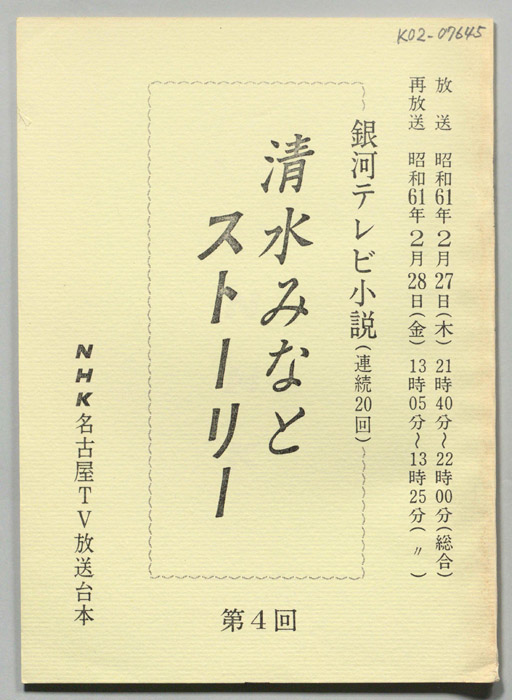 K02-07645
放送 昭和61年2月27日(木) 21時40分～22時00分(総合)
再放送 昭和61年2月28日(金) 13時05分～13時25分(〃)
銀河テレビ小説(連続20回)
清水みなと
ストーリー
第4回
NHK名古屋TV放送台本